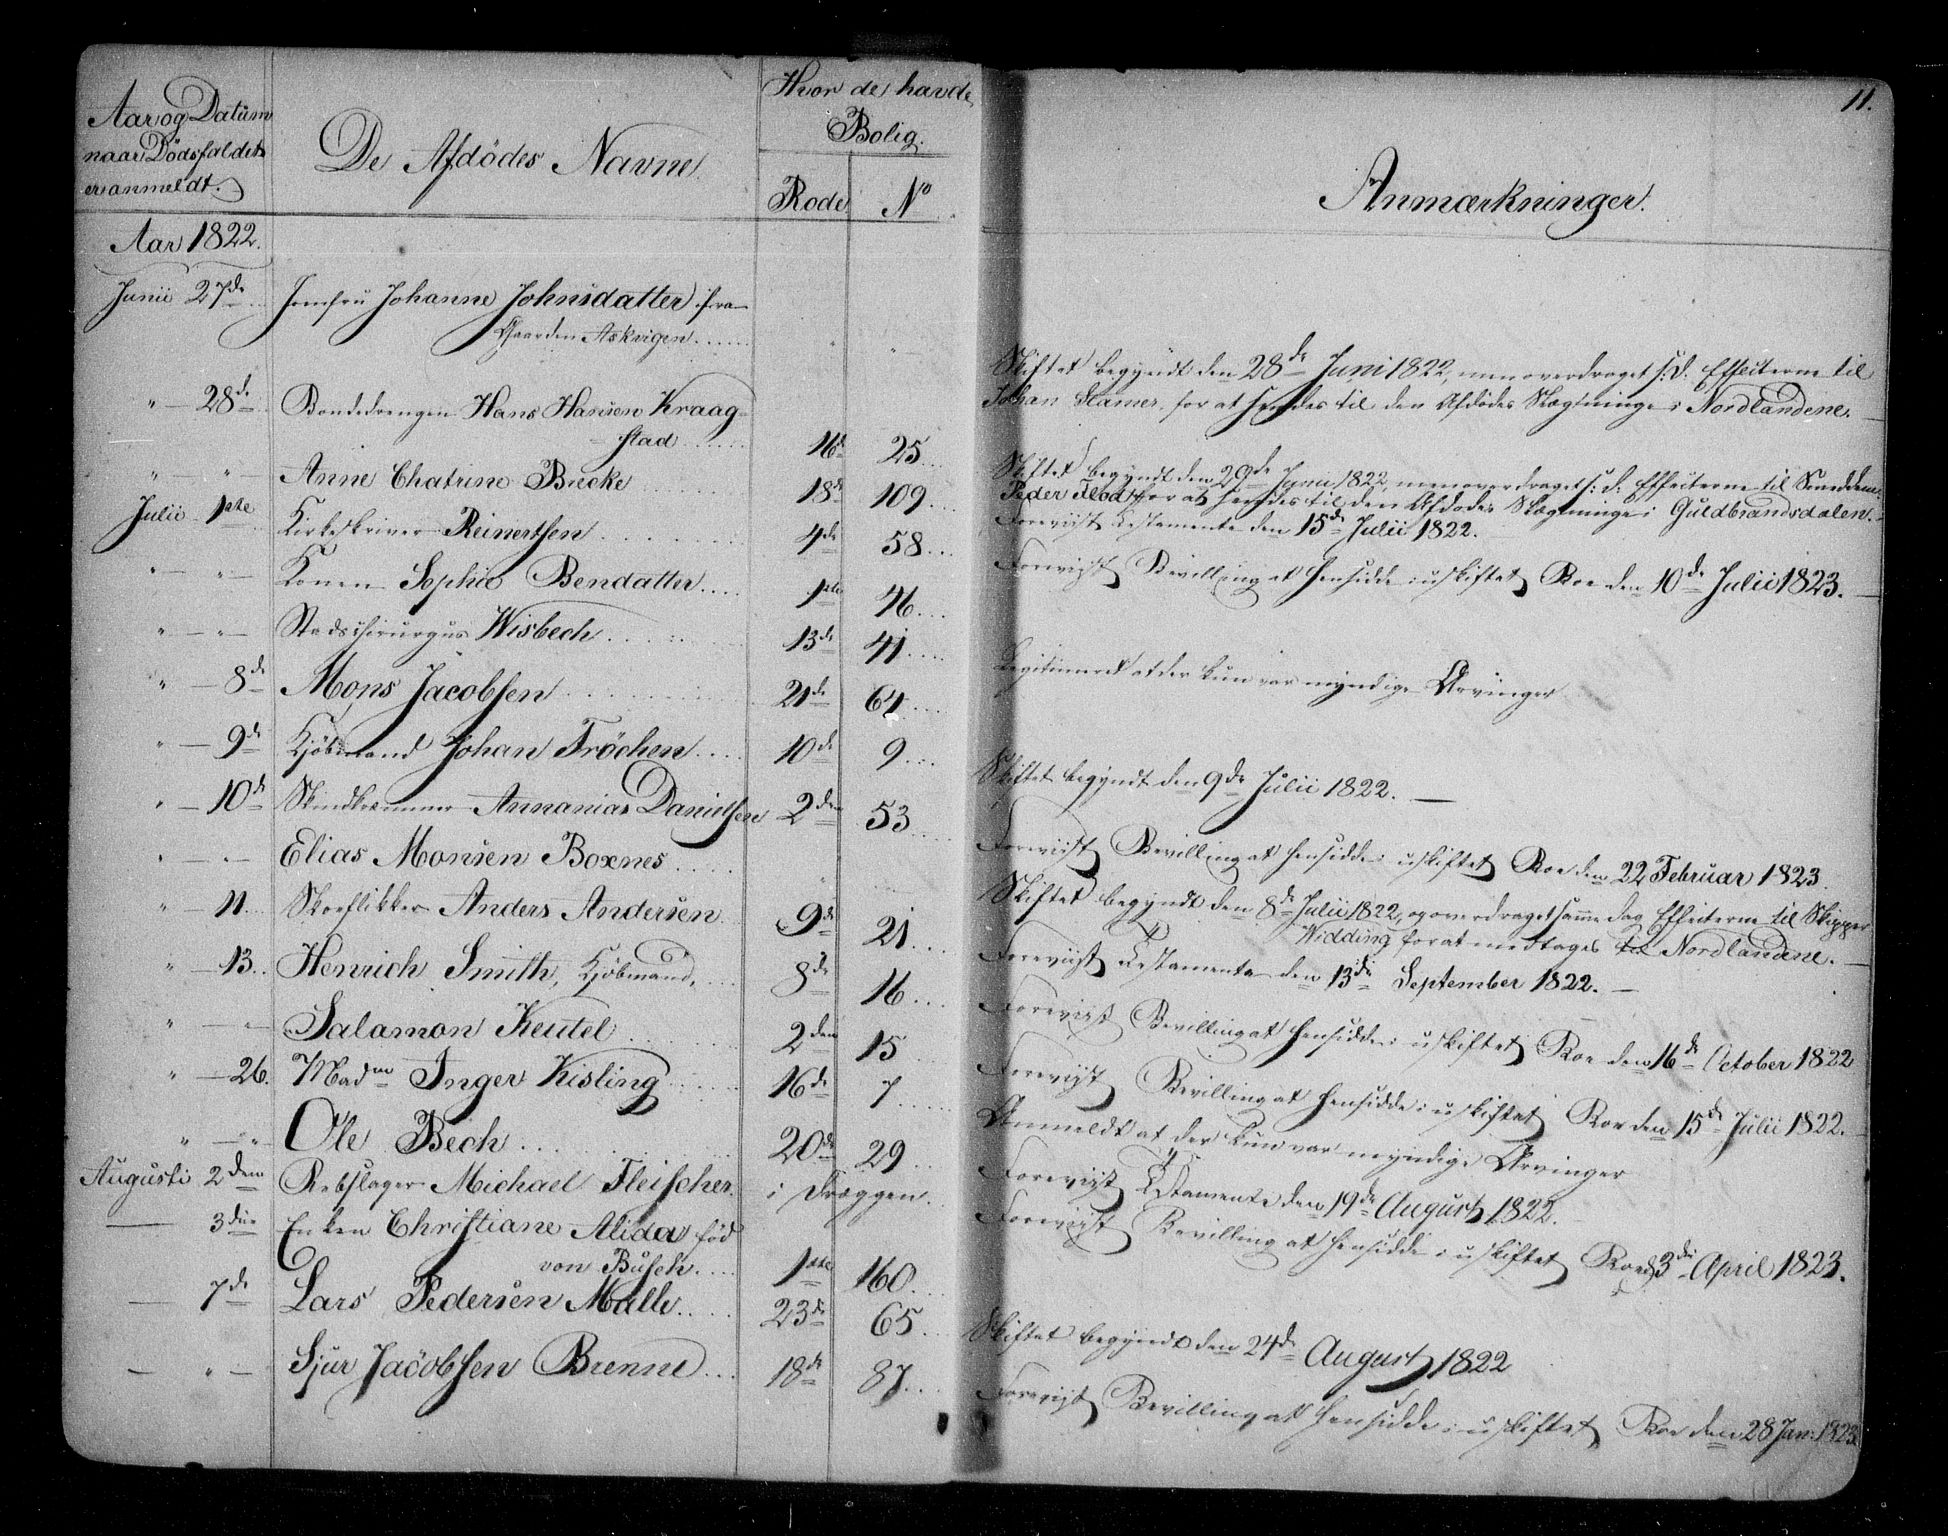 Aar og Datum
naar Dödsfaldet
er anmeldt.
De Afdödes Navne
Hvor de havde
Bolig.
Rode
No
11.
Anmærkninger.
Aar 1822.
Junii 27de Jomfru Johanne Johnsdatter fra
Gaarden Askvigen
Skiftet begyndt den 28de Juni 1822, men overdraget s: D: Effecterne til
Johan Hamer for at sendes til den Afdödes Slægtninge i Nordlandene.
" — 28de Bondedrengen Hans Hansen Kraag-
stad 16de 25
Skiftet begyndt den 29de Juni 1822, men overdraget s: d: Effecterne til
Peder for at sendes til den Afdödes Slægtninge i Guldbrandsdalen.
" — " — Anne Chatrine Biecke 18de 109
Foreviist Testamente den 15de Julii 1822.
Julii 1ste Kirkeskriver Reinertsen 4de 58
Foreviist Bevilling at hensidde i uskiftet Boe den 10de Julii 1823.
" — " — Konen Sophie Bendatter 1ste 46
" — " — Stadschirurgus Wisbech 13de 41
Legitimeret at der kun var myndige Arvinger
" — 8de Mons Jacobsen 21de 64
" — 9de Kjöbmand Johan Fröchen 10de 9
Skiftet begyndt den 9de Julii 1822.
" — 10de Skindkræmmer Annanias Danielsen 2den 53
Foreviist Bevilling at hensidde i uskiftet Boe den 22 Februar 1823.
" — " — Elias Monsen Boxnes
Skiftet begyndt den 8de Julii 1822, og overdraget samme dag Effecterne til Skipper
Widding for at medtages til Nordlandene.
" — 11 Skoeflikker Anders Andersen 9de 21
Foreviist Testamente den 13de September 1822.
" — 13. Henrich Smith, Kjöbmand, 8de 16
Foreviist Bevilling at hensidde i uskiftet Boe den 16de October 1822
" — " — Salamon Keutel 2den 15
Foreviist Bevilling at hensidde i uskiftet Boe den 15de Julii 1822.
" — 26. Madme Inger Kisling 16de 7
Anmeldt at der kun var myndige Arvinger
" — " Ole Bech 20de 29
Foreviist Testamente den 19de August 1822.
Augusti 2den Rebslager Michael Fleischer i Dræggen
Foreviist Bevilling at hensidde i uskiftet Boe d. 3die April 1823.
— 3die Enken Christiane Alida föd
von Busch 1ste 160
— 7de Lars Pedersen Malle 23de 65
Skiftet begyndt den 24de August 1822
— " — Sjur Jacobsen Brenne 18de 87
Foreviist Bevilling at hensidde i uskiftet Boe den 28 Jan: 1823